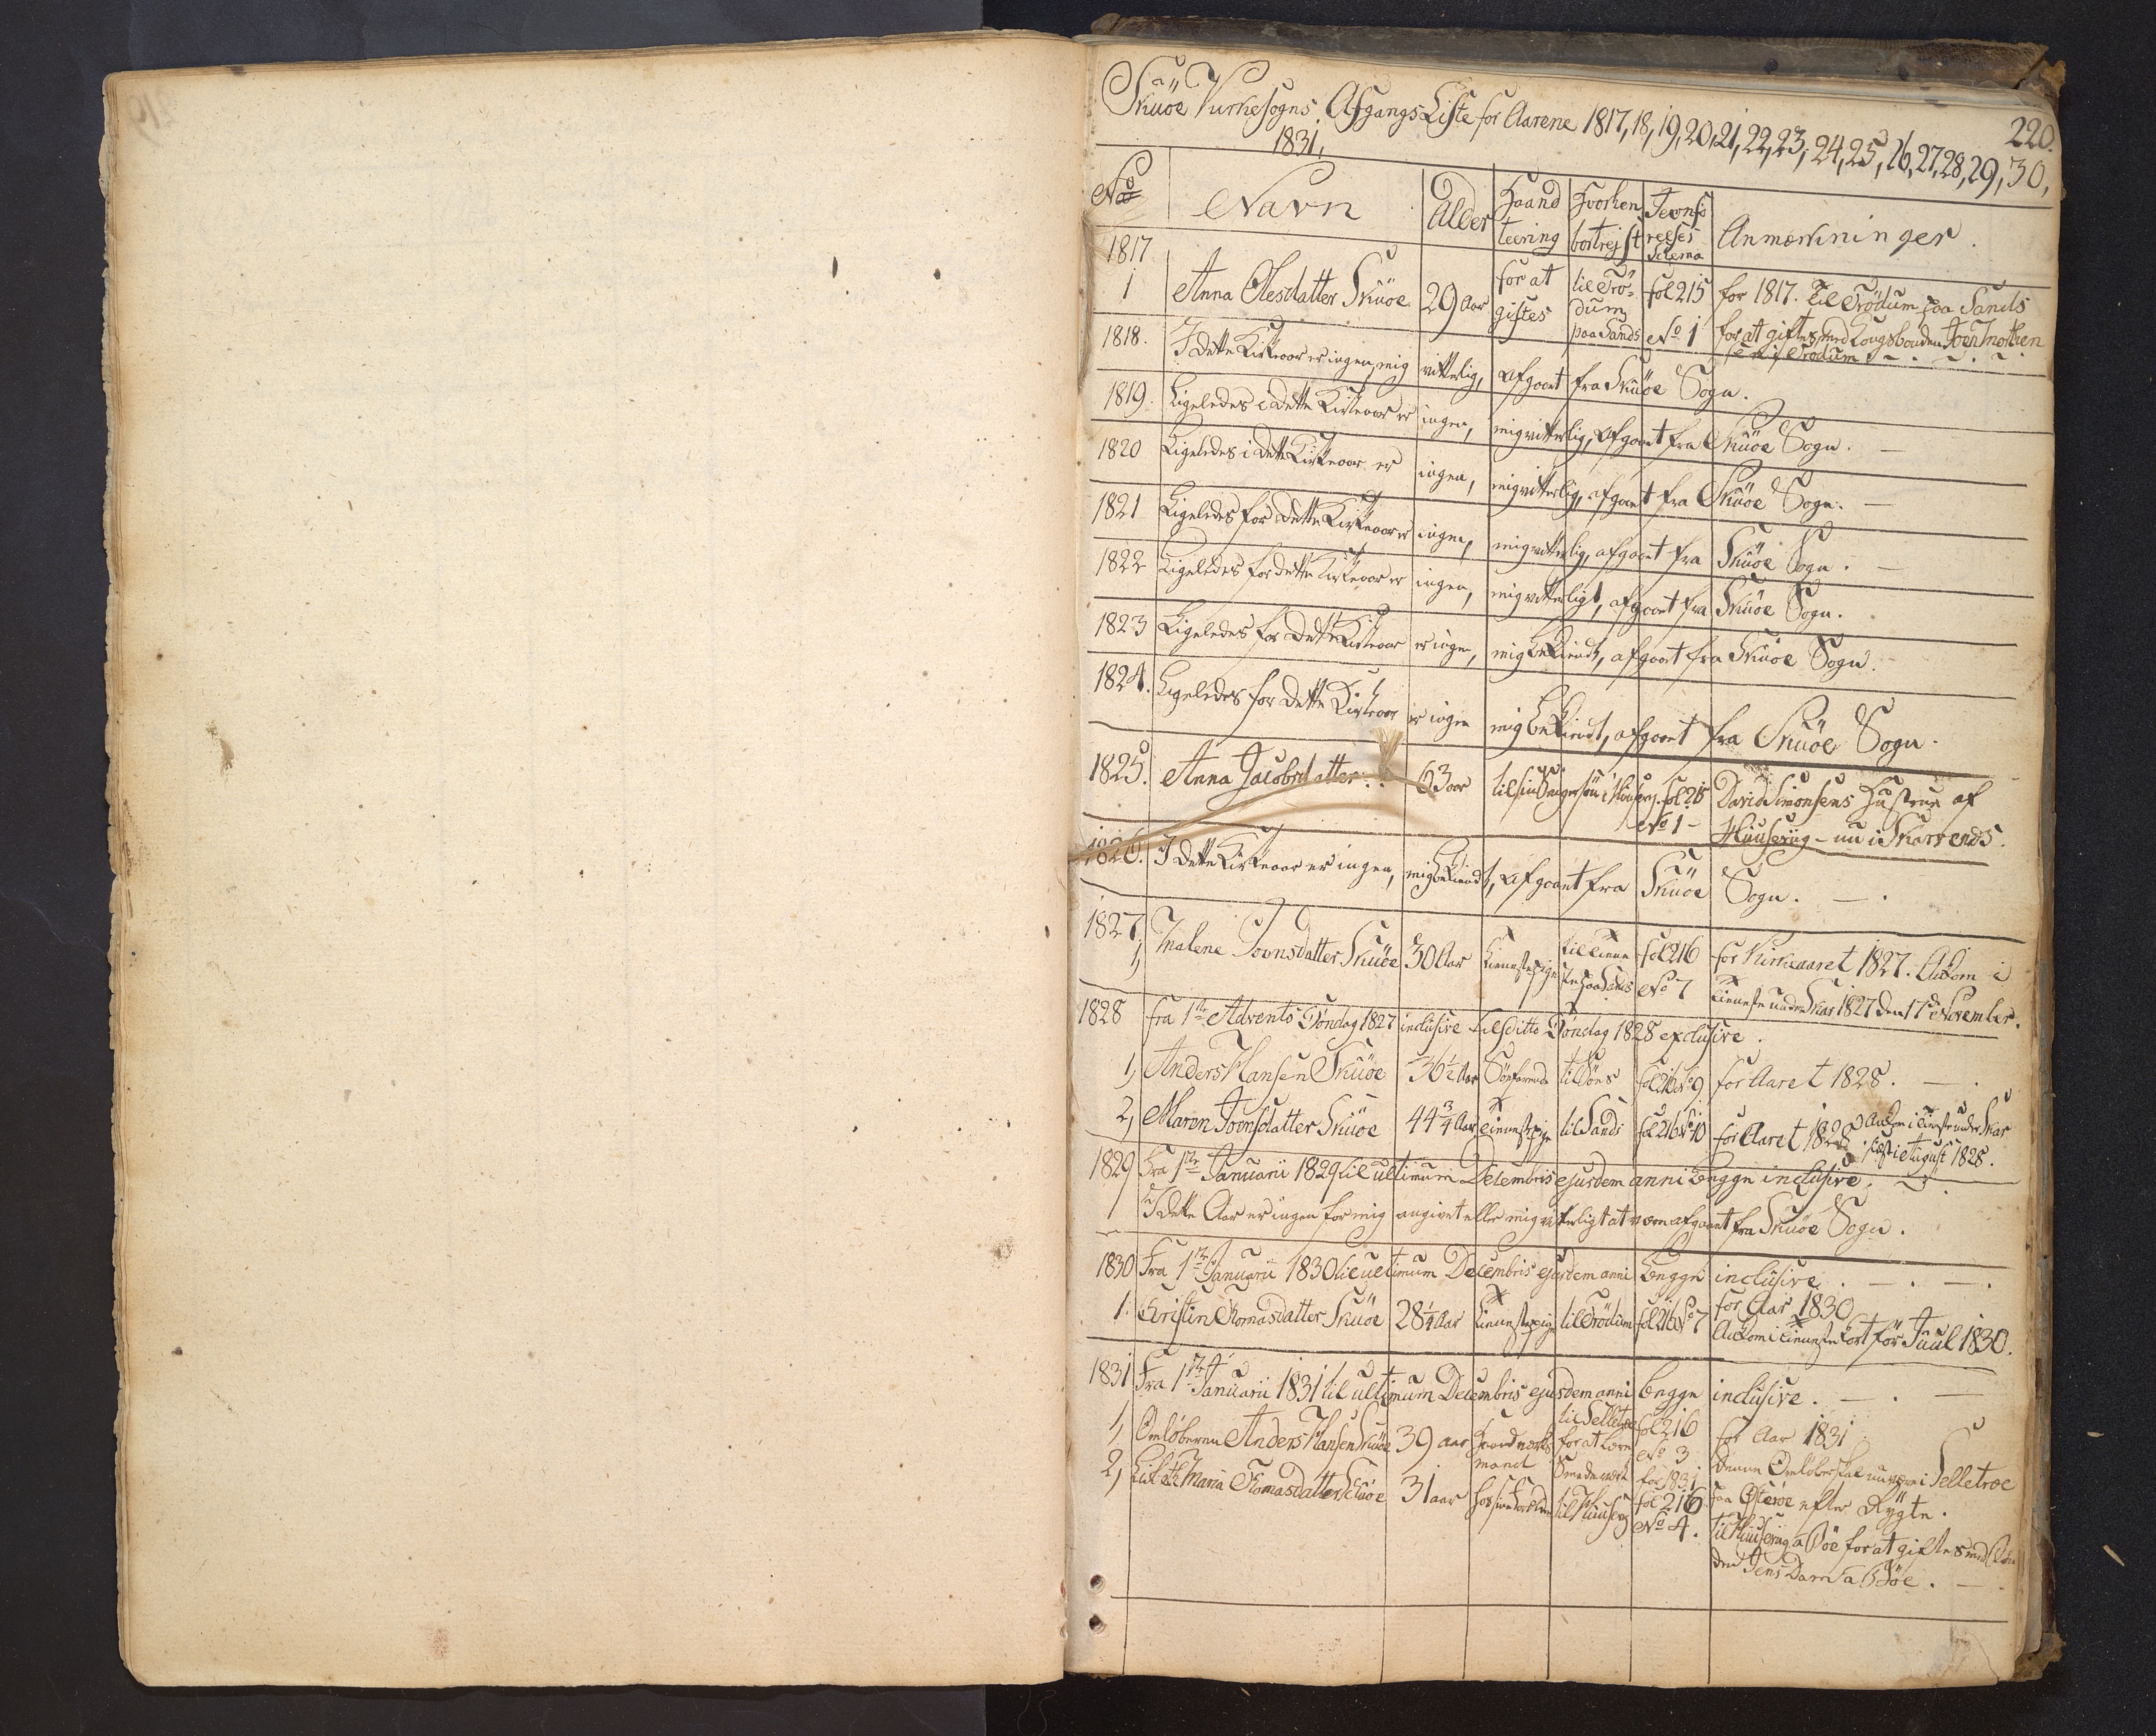 220.
Skuöe Kirkesogns Afgangs Liste for Aarene 1817, 18, 19, 20, 21, 22, 23, 24, 25, 26, 27, 28, 29, 30,
1831,
No Navn Alder Haand teering Hvorhen bortrejst Jevnfö reeses Schema Anmærkninger.
1817
1 Anna Olesdatter Skuöe 29 Aar for at giftes til Trö- dum paa Sands fol 215 No 1 for 1817. Til Trödum paa Sands
for at giftes med Kongsbonden Joen
i Trödum
1818. I dette Kirkeaar er ingen, mig vitterlig, afgaaet fra Skuöe Sogn.
1819. Ligeledes i dette Kirkeaar er ingen, mig vitterlig, afgaaet fra Skuöe Sogn. —
1820 Ligeledes i dette Kirkeaar er ingen, mig vitterlig, afgaaet fra Skuöe Sogn. —
1821 Ligeledes for dette Kirkeaar er ingen, mig vitterlig, afgaaet fra Skuöe Sogn. —
1822 Ligeledes for dette Kirkeaar er ingen, mig vitterligt, afgaaet fra Skuöe Sogn.
1823 Ligeledes for dette Kirkeaar er ingen, mig bekiendt, afgaaet fra Skuöe Sogn.
1824. Ligeledes for dette Kirkeaar er ingen mig bekiendt, afgaaet fra Skuöe Sogn.
1825. Anna Jacobsdatter 63 aar til sin i Huuserg. fol 215 No 1 – David Simonsens Hustrue af
Huuserüg – nu i Skarvenes.
1826. I dette Kirkeaar er ingen, mig bekiendt, afgaaet fra Skuöe Sogn. — .
1827,
1, Malene Joensdatter Skuöe 30 Aar tienestepige til tiene ste paa Sands fol 216 No 7 for Kirkeaaret 1827. Ankom i
tieneste under Skar 1827 den 17de November.
1828 fra 1ste Advents Söndag 1827 inclusive til ditto Söndag 1828 exclusive.
1, Anders Hansen Skuöe 36½ Aar til fol 216 No 9 for Aaret 1828. —
2, Maren Joensdatter Skuöe 44¾ Aar tienestepige til Sands fol 216 No 10 for Aaret 1828 Ankom i tieneste under Skar
sidst i August 1828.
1829 Fra 1ste Januarii 1829 til ultimum Decembris ejusdem anni begge inclusive.
I dette Aar er ingen for mig angivet eller mig vitterligt at være afgaaet fra Skuöe Sogn.
1830 Fra 1ste Januarii 1830 til ultimum Decembris ejusdem anni begge inclusive. — . — .
1. Christin Thomasdatter Skuöe 28¼ Aar tienestepige til Trödum fol 216 No 7 for Aar 1830
Ankom i tieneste kort för Juul 1830.
1831 Fra 1ste Januarii 1831 til ultimum Decembris ejusdem anni begge inclusive. — . —
1, Omløberen Anders Hansen Skuöe 39 aar Haandværks mand til Selletroe for at lære Smedeværk fol 216 No 3 for 1831 for Aar 1831
Denne Omløber skal nu være i Selletroe
paa Østeröe efter Rygte.
2, Lisbeth Maria Thomasdatter Skuöe 31 aar hos sine Forældre til Huuserg fol 216 No 4. til Huuserüg a Böe for at giftes med
Jens a Böe. —